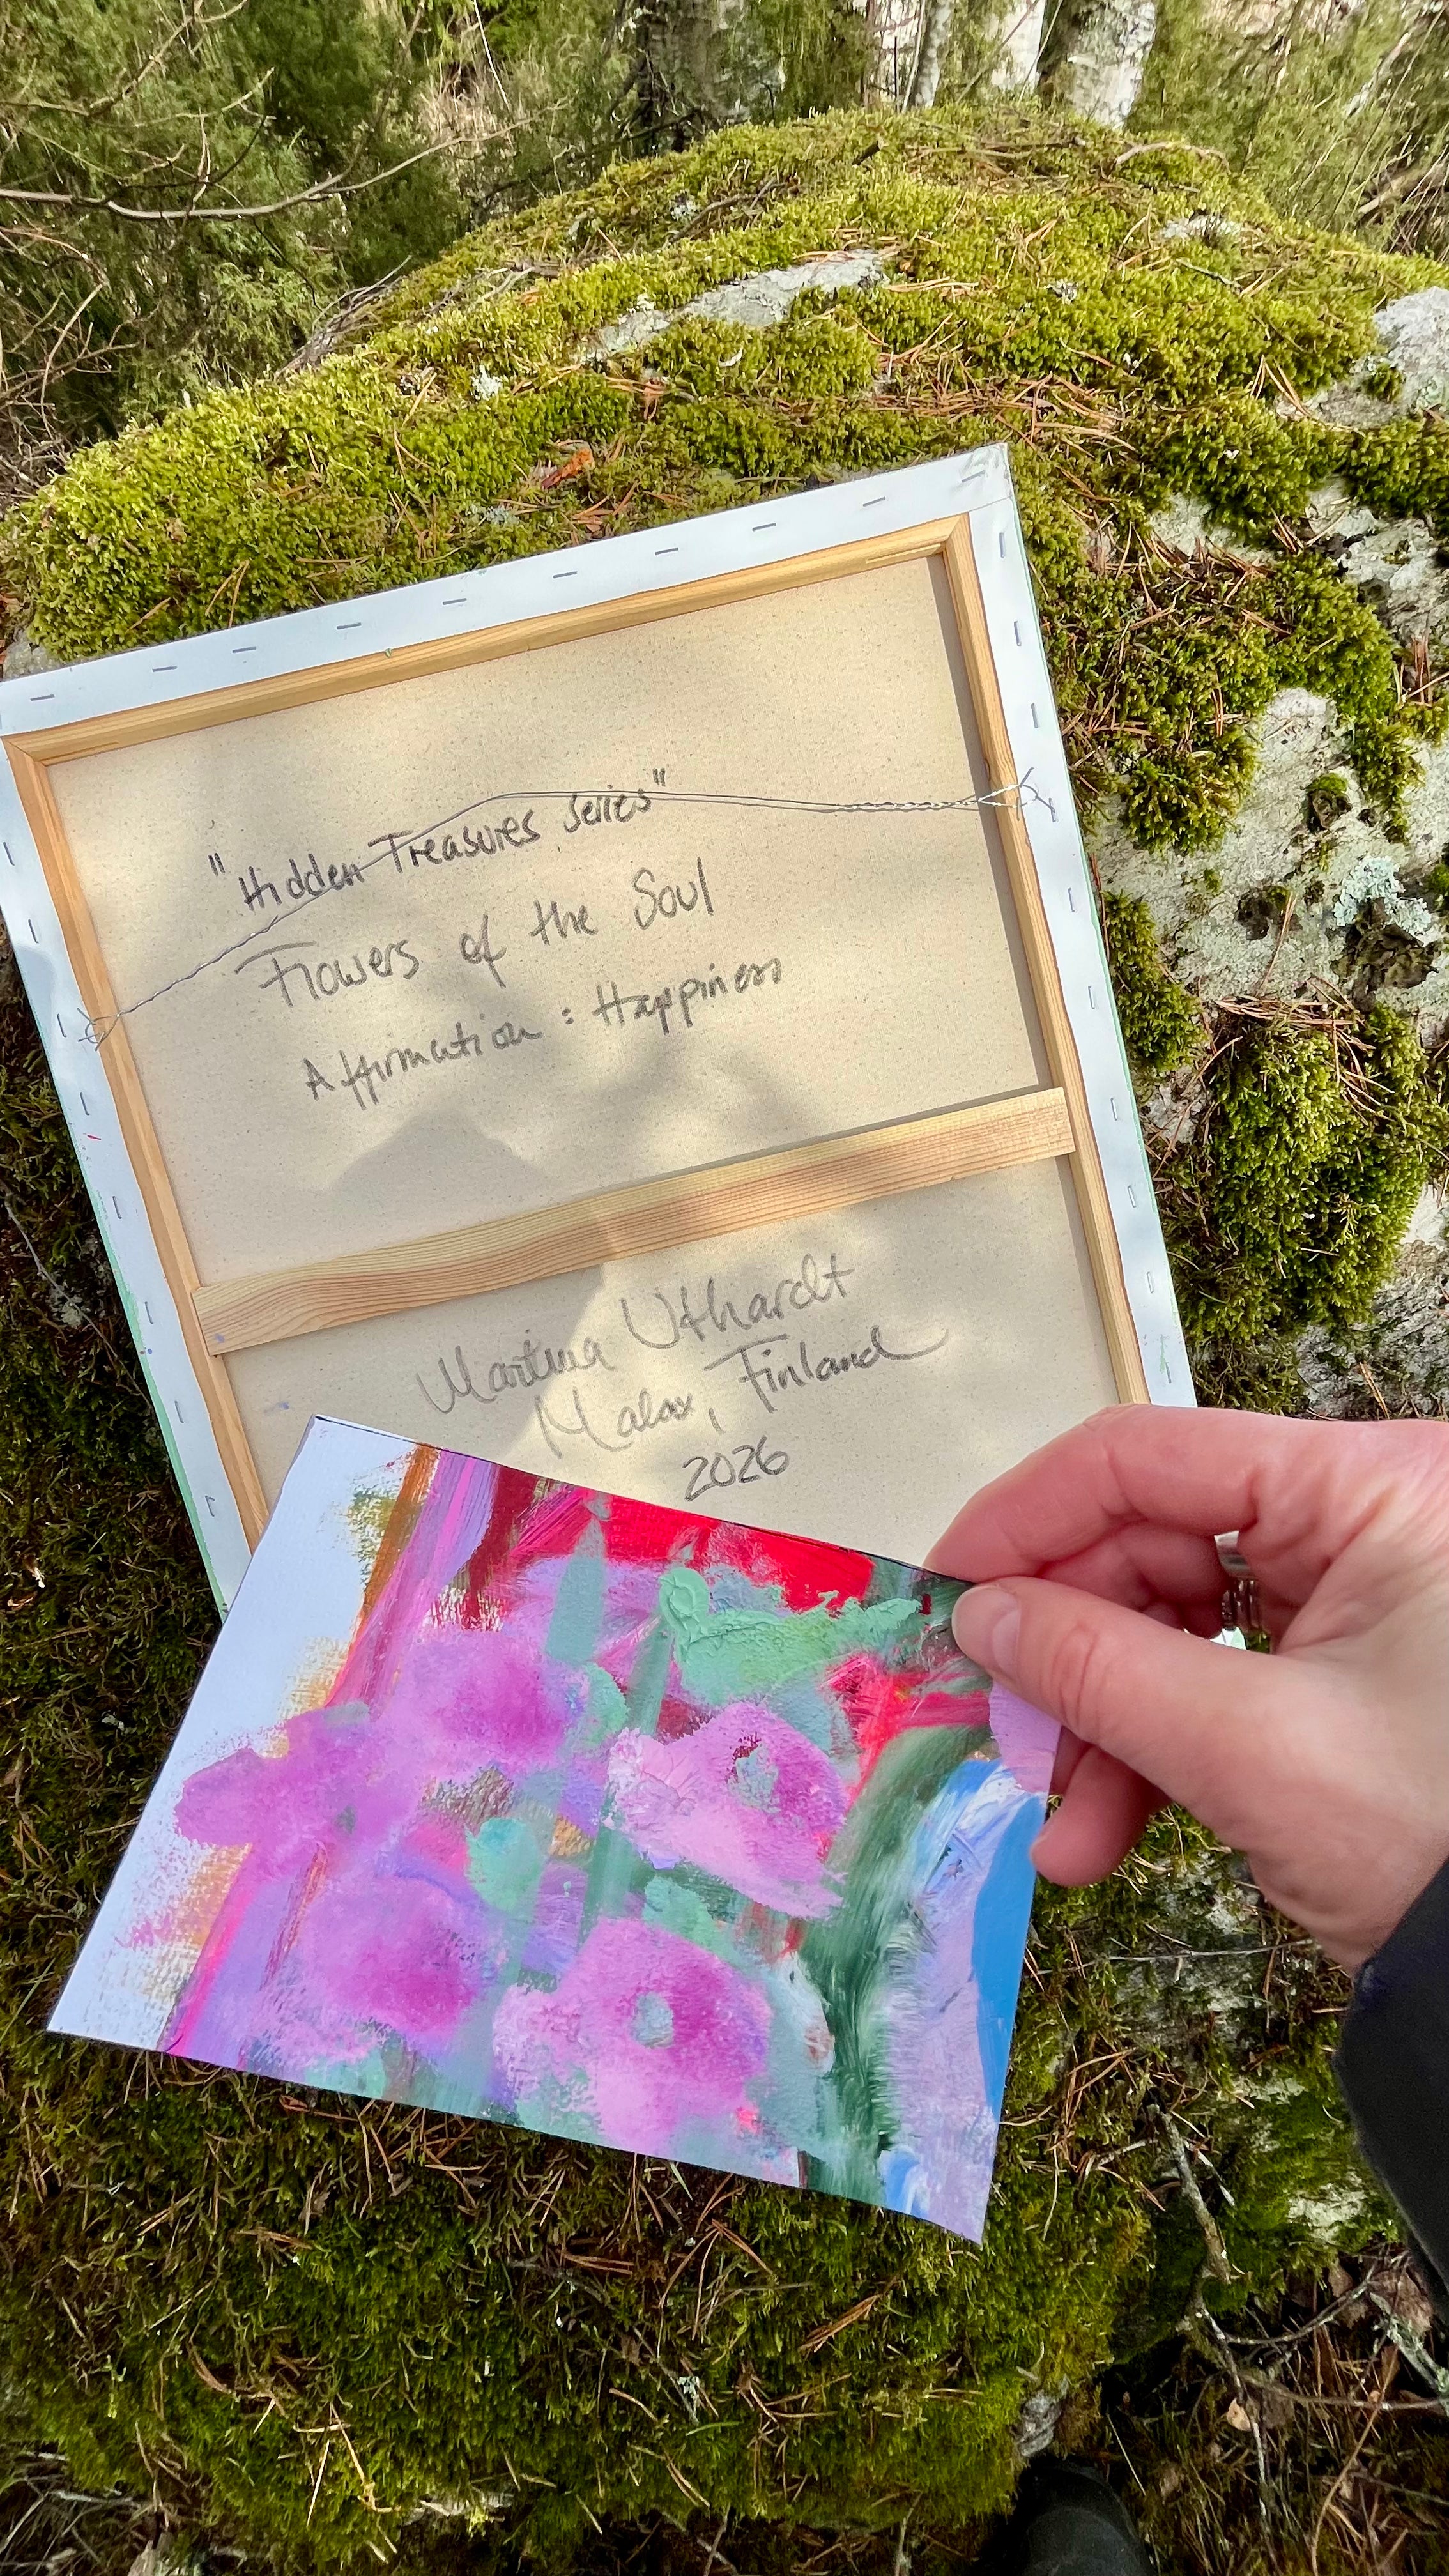 "Hidden Treasures Series"
Flowers of the Soul
Affirmation : Happiness
Martina Uthardt
Malax, Finland
2026